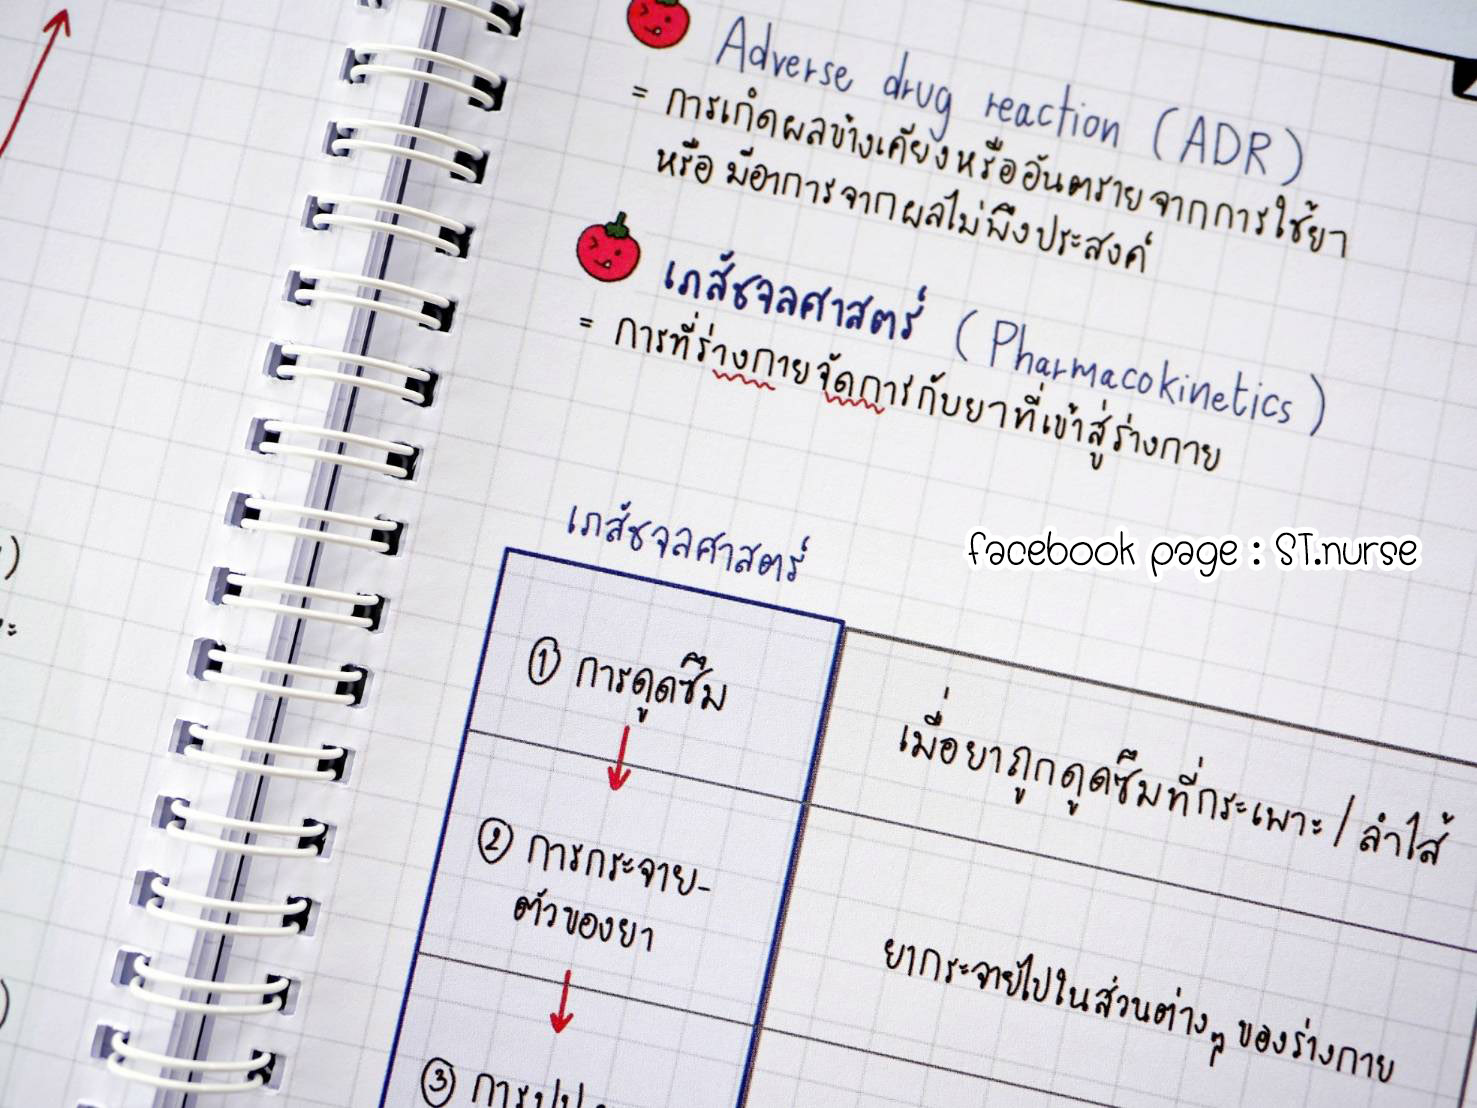 Adverse drug reaction (ADR)
= การเกิดผลข้างเคียงหรืออันตรายจากการใช้ยา
หรือ มีอาการจากผลไม่พึงประสงค์
เภสัชจลศาสตร์ (Pharmacokinetics)
= การที่ร่างกายจัดการกับยาที่เข้าสู่ร่างกาย
facebook page : ST.nurse
เภสัชจลศาสตร์
① การดูดซึม
เมื่อยาถูกดูดซึมที่กระเพาะ/ลำไส้
② การกระจาย-
ตัวของยา
ยากระจายไปในส่วนต่างๆ ของร่างกาย
③